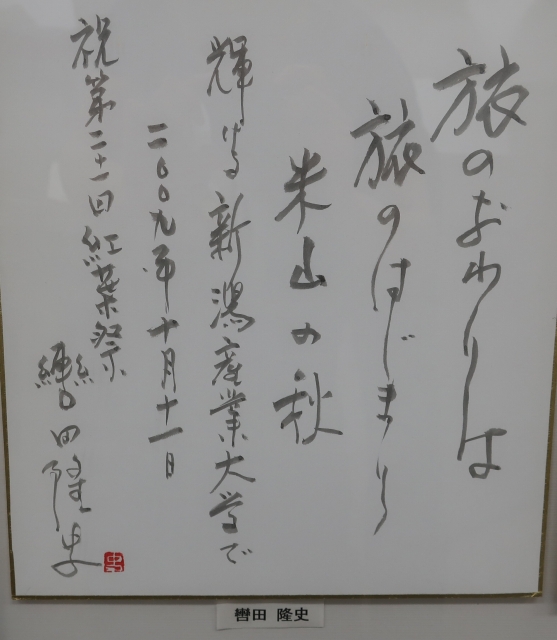 旅のおわりは
旅のはじまり
米山の秋
輝ける新潟産業大学で
二〇〇九年十月十一日
祝第二十一回紅葉祭
轡田隆史
轡田 隆史